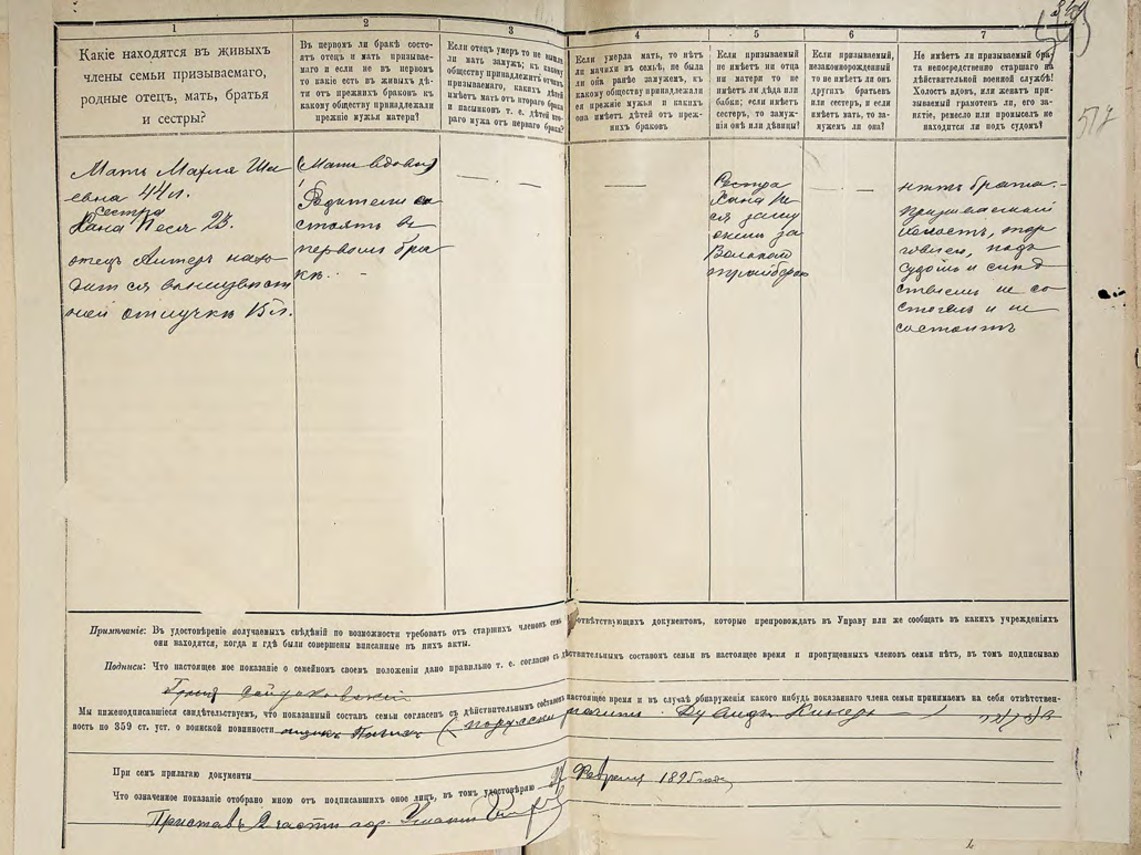 1
2
3
4
5
6
7
Какіе находятся въ живыхъ
члены семьи призываемаго,
родные отецъ, мать, братья
и сестры?
Въ первомъ ли бракѣ состо-
ятъ отецъ и мать призывае-
маго и если не въ первомъ
то какіе есть въ живыхъ дѣ-
ти отъ прежнихъ браковъ къ
какому обществу принадлежали
прежніе мужья матери?
Если отецъ умеръ то не вышла
ли мать замужъ; къ какому
обществу принадлежитъ отчимъ
призываемаго, какихъ дѣтей
имѣетъ мать отъ втораго брака
и пасынковъ т. е. дѣтей вто-
раго мужа отъ перваго брака?
Если умерла мать, то нѣтъ
ли мачихи въ семьѣ, не была
ли она ранѣе замужемъ, къ
какому обществу принадлежали
ея прежніе мужья и какихъ
она имѣетъ дѣтей отъ преж-
нихъ браковъ
Если призываемый
не имѣетъ ни отца
ни матери то не
имѣетъ ли дѣда или
бабки; если имѣетъ
сестеръ, то замуж-
нія онѣ или дѣвицы?
Если призываемый,
незаконнорожденный
то не имѣетъ ли онъ
другихъ братьевъ
или сестеръ, и если
имѣетъ мать, то за-
мужемъ ли она?
Не имѣетъ ли призываемый бра-
та непосредственно старшаго на
дѣйствительной военной службѣ!
Холостъ вдовъ, или женатъ при-
зываемый грамотенъ ли, его за-
нятіе, ремесло или промыселъ не
находится ли подъ судомъ?
517
Мать Марія
евна 44 л.
сестра
Хана Песя 23.
отецъ находится
въ неизвѣст
ной отлучкѣ 15 л.
(Мать вдова)
Родители со
стоятъ въ
первомъ бра
кѣ. -
Сестра
Хана Пе
ся заму
жемъ за
нѣтъ брата.
призываемый
холостъ, тор
говлей, подъ
судомъ и слѣд
ствіемъ не со
стоялъ и не
состоитъ
Примѣчаніе: Въ удостовѣреніе получаемыхъ свѣдѣній по возможности требовать отъ старшихъ членовъ семьи соотвѣтствующихъ документовъ, которые препровождать въ Управу или же сообщать въ какихъ учрежденіяхъ
они находятся, когда и гдѣ были совершены вписанные въ нихъ акты.
Подписи: Что настоящее мое показаніе о семейномъ своемъ положеніи дано правильно т. е. согласно съ дѣйствительнымъ составомъ семьи въ настоящее время и пропущенныхъ членовъ семьи нѣтъ, въ томъ подписываю
Мы нижеподписавшіеся свидѣтельствуемъ, что показанный составъ семьи согласенъ съ дѣйствительнымъ составомъ настоящее время и въ случаѣ обнаруженія какого нибудь показаннаго члена семьи принимаемъ на себя отвѣтствен-
ность по 359 ст. уст. о воинской повинности (по русски значитъ
При семъ прилагаю документы
Что означенное показаніе отобрано мною отъ подписавшихъ оное лицъ, въ томъ удостовѣряю Февраля 1895 года
Приставъ 2 части гор. Умани